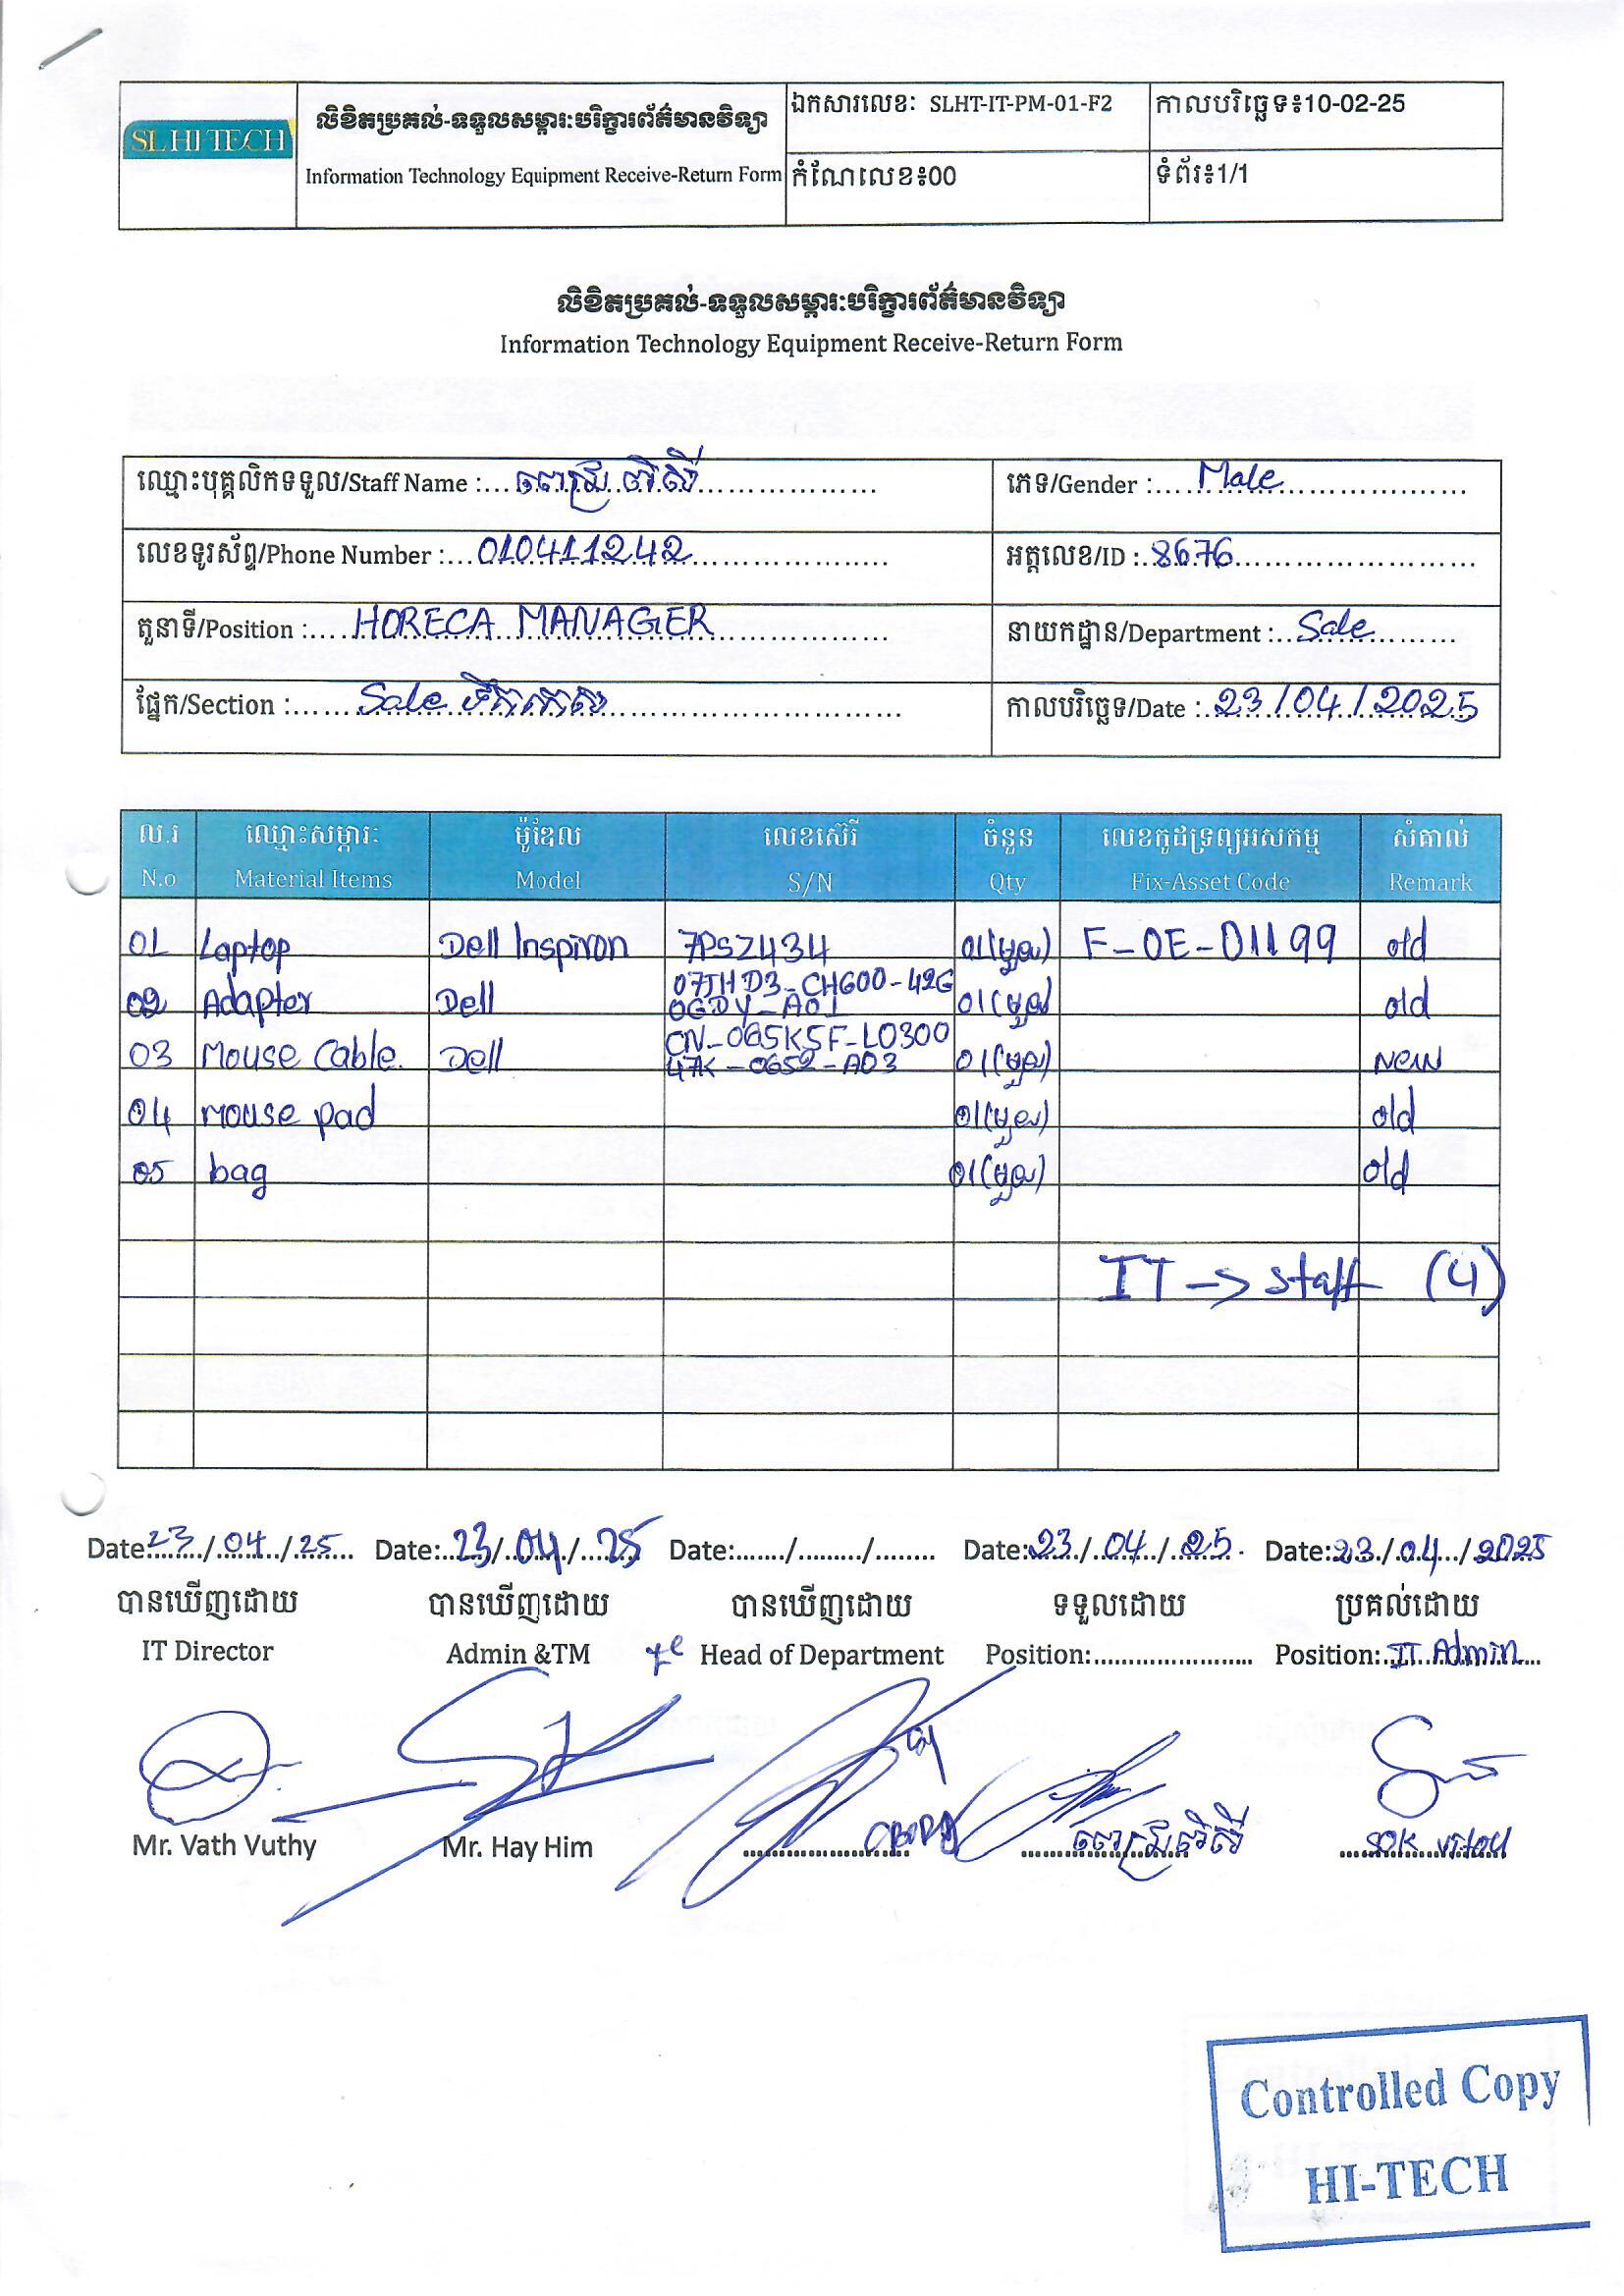 SL HI-TECH
លិខិតប្រគល់-ទទួលសម្ភារៈបរិក្ខារព័ត៌មានវិទ្យា
Information Technology Equipment Receive-Return Form
ឯកសារលេខៈ SLHT-IT-PM-01-F2
កាលបរិច្ឆេទ៖10-02-25
កំណែលេខ៖00
ទំព័រ៖1/1
លិខិតប្រគល់-ទទួលសម្ភារៈបរិក្ខារព័ត៌មានវិទ្យា
Information Technology Equipment Receive-Return Form
ឈ្មោះបុគ្គលិកទទួល/Staff Name :... ពេជ្រ ពិសី
ភេទ/Gender :... Male
លេខទូរស័ព្ទ/Phone Number :... 010411242
អត្តលេខ/ID :... 8676
តួនាទី/Position :... HORECA MANAGER
នាយកដ្ឋាន/Department :... Sale
ផ្នែក/Section :... Sale ទឹកកាស
កាលបរិច្ឆេទ/Date : 23/04/2025
ល.រ ឈ្មោះសម្ភារៈ ម៉ូឌែល លេខស៊េរី ចំនួន លេខកូដទ្រព្យអសកម្ម សំគាល់
N.o Material Items Model S/N Qty Fix-Asset Code Remark
01 Laptop Dell Inspiron 7PSZ434 01(មួយ) F-OE-01199 old
02 Adapter Dell 07JHD3-CH600-42G 01(មួយ) old
0GDY-A01
03 Mouse Cable. Dell CN-065K5F-L0300 01(មួយ) New
47K-06S2-A03
04 Mouse pad 01(មួយ) old
05 bag 01(មួយ) old
IT -> staff (4)
Date: 23/04/25 Date: 23/04/25 Date:......./........./........ Date: 23/04/25 Date: 23/04/2025
បានឃើញដោយ បានឃើញដោយ បានឃើញដោយ ទទួលដោយ ប្រគល់ដោយ
IT Director Admin &TM Head of Department Position:....................... Position: IT Admin
Mr. Vath Vuthy Mr. Hay Him ពេជ្រ ពិសី SOK VITOU
Controlled Copy
HI-TECH